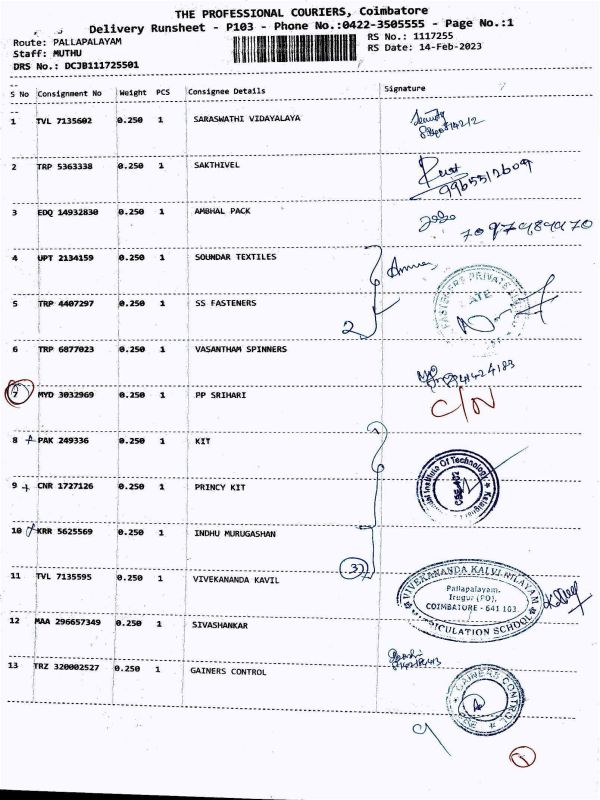 THE PROFESSIONAL COURIERS, Coimbatore
Delivery Runsheet - P103 - Phone No.:0422-3505555 - Page No.:1
Route: PALLAPALAYAM RS No.: 1117255
Staff: MUTHU RS Date: 14-Feb-2023
DRS No.: DCJB111725501
S No Consignment No Weight PCS Consignee Details Signature
1 TVL 7135602 0.250 1 SARASWATHI VIDAYALAYA
2 TRP 5363338 0.250 1 SAKTHIVEL
9965512609
3 EDQ 14932830 0.250 1 AMBHAL PACK
4 UPT 2134159 0.250 1 SOUNDAR TEXTILES
5 TRP 4407297 0.250 1 SS FASTENERS
2
6 TRP 6877023 0.250 1 VASANTHAM SPINNERS
7 MYD 3032969 0.250 1 PP SRIHARI
C/N
8 PAK 249336 0.250 1 KIT
9 CNR 1727126 0.250 1 PRINCY KIT
Institute Of Technology
CSE-402
10 KRR 5625569 0.250 1 INDHU MURUGASHAN
3
11 TVL 7135595 0.250 1 VIVEKANANDA KAVIL
VIVEKANANDA KALVI NILAYAM
Pallapalayam,
Irugur (PO),
COIMBATORE - 641 103
ICULATION SCHOOL
12 MAA 296657349 0.250 1 SIVASHANKAR
13 TRZ 320002527 0.250 1 GAINERS CONTROL
GAINERS CONTROL